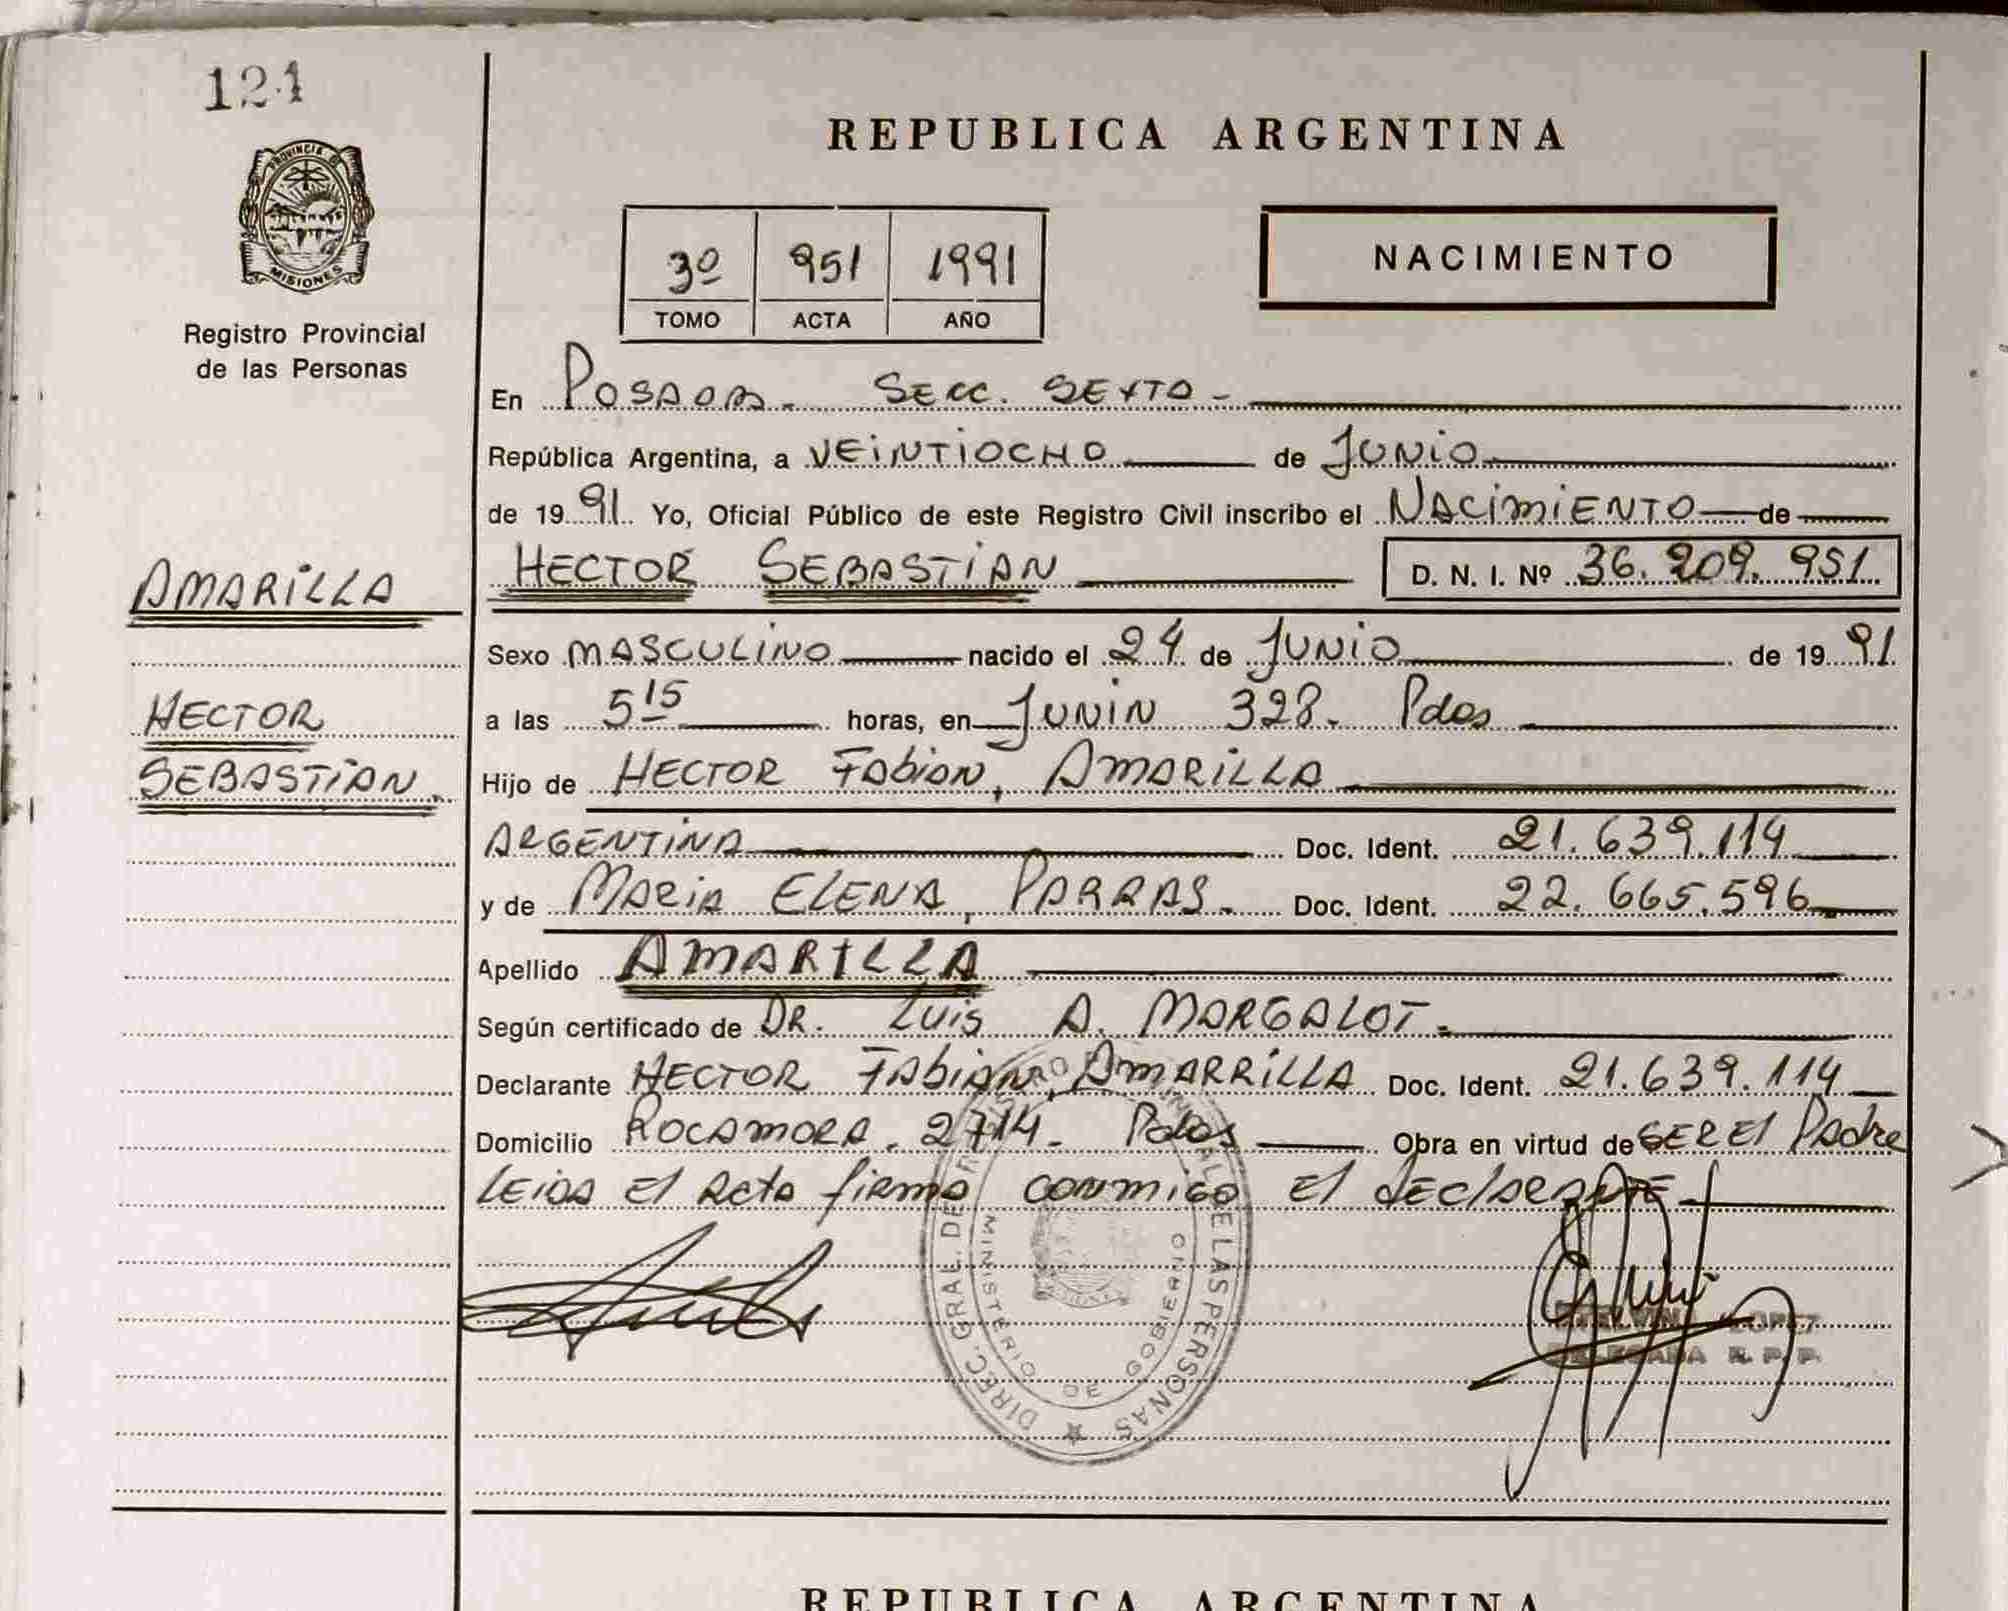 124
PROVINCIA DE
MISIONES
Registro Provincial
de las Personas
AMARILLA
HECTOR
SEBASTIAN.
REPUBLICA ARGENTINA
3º 951 1991
TOMO ACTA AÑO
NACIMIENTO
En POSADAS. SECC. SEXTA -
República Argentina, a VEINTIOCHO de JUNIO
de 1991. Yo, Oficial Público de este Registro Civil inscribo el NACIMIENTO de
HECTOR SEBASTIAN D. N. I. Nº 36.209.951
Sexo MASCULINO nacido el 24 de JUNIO de 1991.
a las 5 15 horas, en JUNIN 328. Pdas
Hijo de HECTOR FABIAN, AMARILLA
ARGENTINA Doc. Ident. 21.639.114
y de MARIA ELENA, PARRAS. Doc. Ident. 22.665.596
Apellido AMARILLA
Según certificado de DR. LUIS A. MARGALOT.
Declarante HECTOR FABIAN, AMARRILLA Doc. Ident. 21.639.114
Domicilio ROCAMORA. 2714. Pdas Obra en virtud de SER El Padre
LEIDA El Acta firma conmigo El declarante
DIREC. GRAL. DE DE LAS PERSONAS
MINISTERIO DE GOBIERNO
LOPEZ
DELEGADA R. P. P.
REPUBLICA ARGENTINA